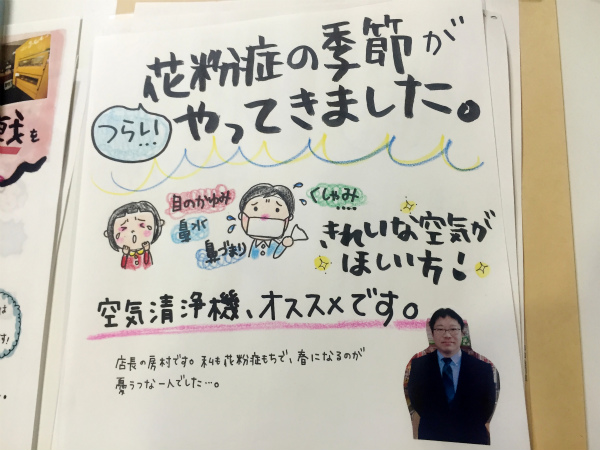 花粉症の季節が
やってきました。
つらい…
目のかゆみ
鼻水
鼻づまり
くしゃみ
きれいな空気が
ほしい方!
空気清浄機、オススメです。
店長の房村です。私も花粉症もちで、春になるのが
憂うつな一人でした…。
戦を